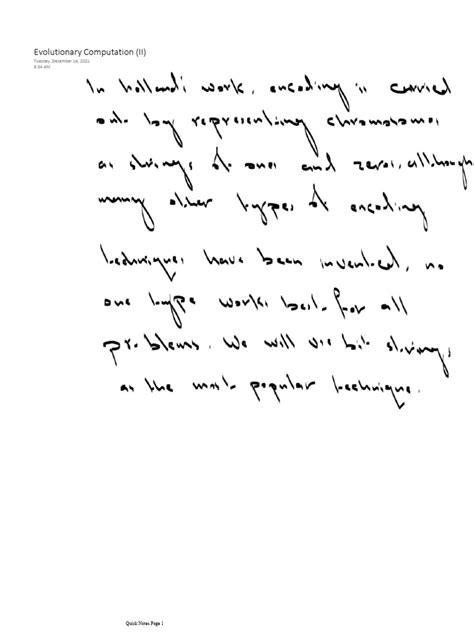 Evolutionary Computation (II)
Tuesday, December 14, 2021
8:34 AM
In Holland's work, encoding is carried
out by representing chromosomes
as strings of ones and zeros, although
many other types of encoding
techniques have been invented, no
one type works best for all
problems. We will use bit strings
as the most popular technique.
Quick Notes Page 1